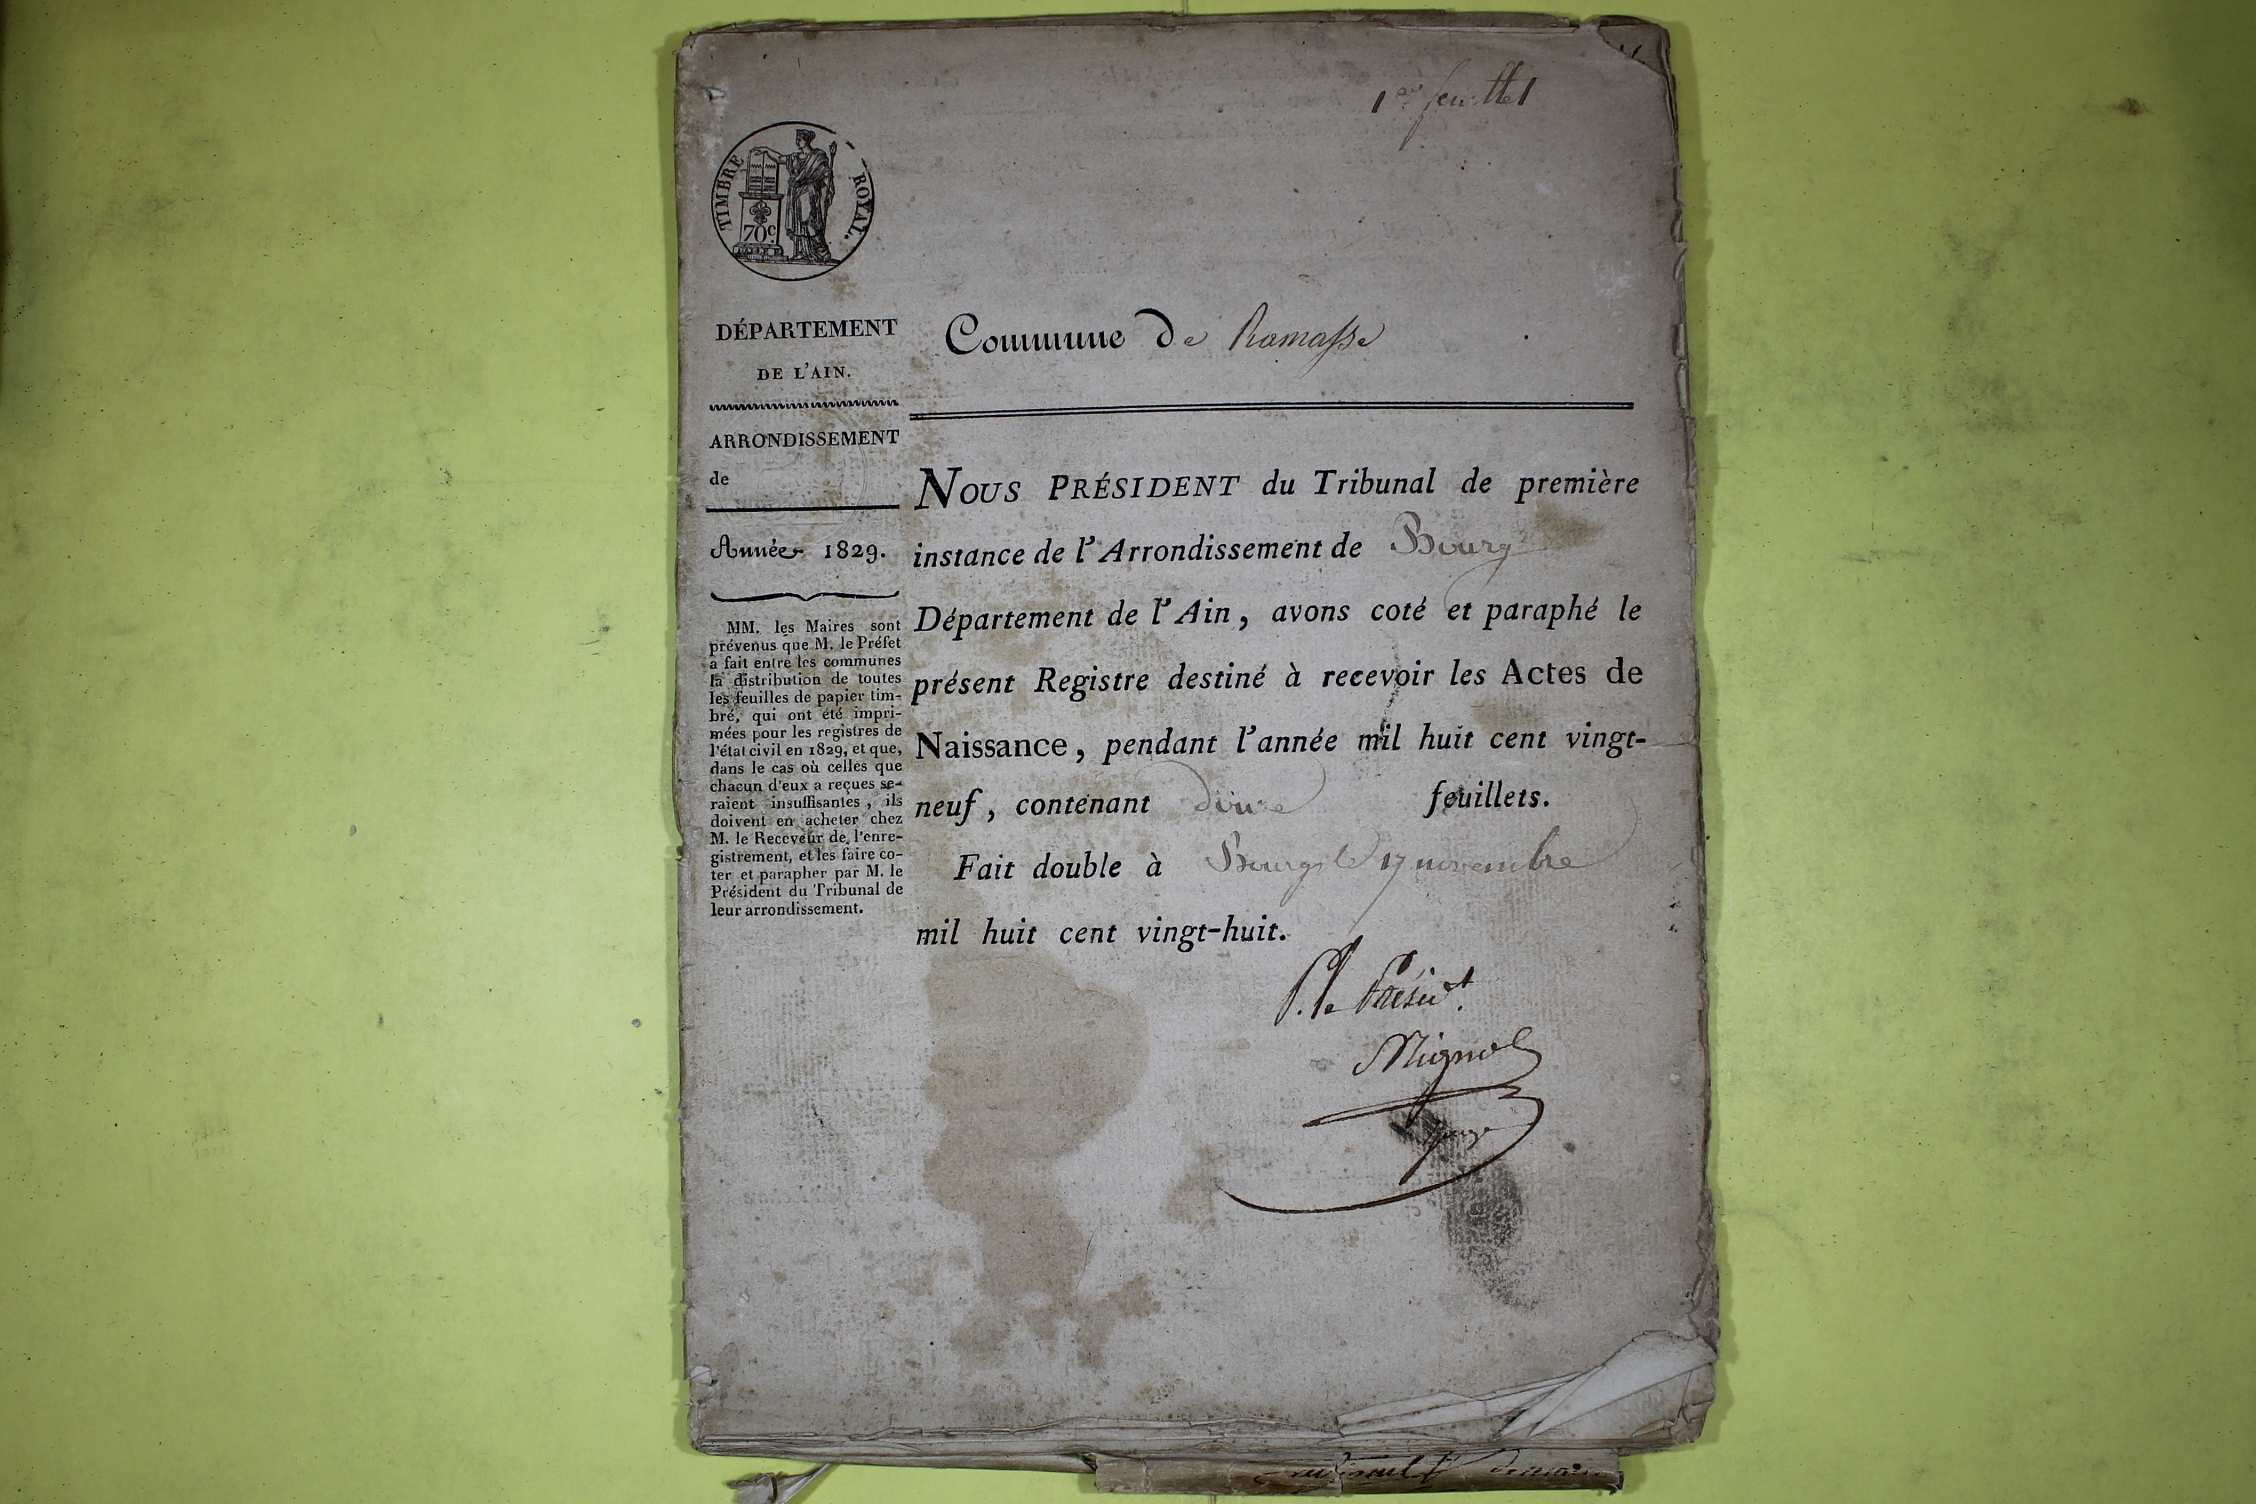 1er feuillet
TIMBRE ROYAL.
70c
DÉPARTEMENT
DE L'AIN.
ARRONDISSEMENT
de
Année 1829.
MM. les Maires sont
prévenus que M. le Préfet
a fait entre les communes
la distribution de toutes
les feuilles de papier tim-
bré, qui ont été impri-
mées pour les registres de
l'état civil en 1829, et que,
dans le cas où celles que
chacun d'eux a reçues se-
raient insuffisantes, ils
doivent en acheter chez
M. le Receveur de l'enre-
gistrement, et les faire co-
ter et parapher par M. le
Président du Tribunal de
leur arrondissement.
Commune de Ramasse
NOUS PRÉSIDENT du Tribunal de première
instance de l'Arrondissement de Bourg
Département de l'Ain, avons coté et paraphé le
présent Registre destiné à recevoir les Actes de
Naissance, pendant l'année mil huit cent vingt-
neuf, contenant feuillets.
Fait double à Bourg le 17 novembre
mil huit cent vingt-huit.
P. le Présidt.
Mignot
juge